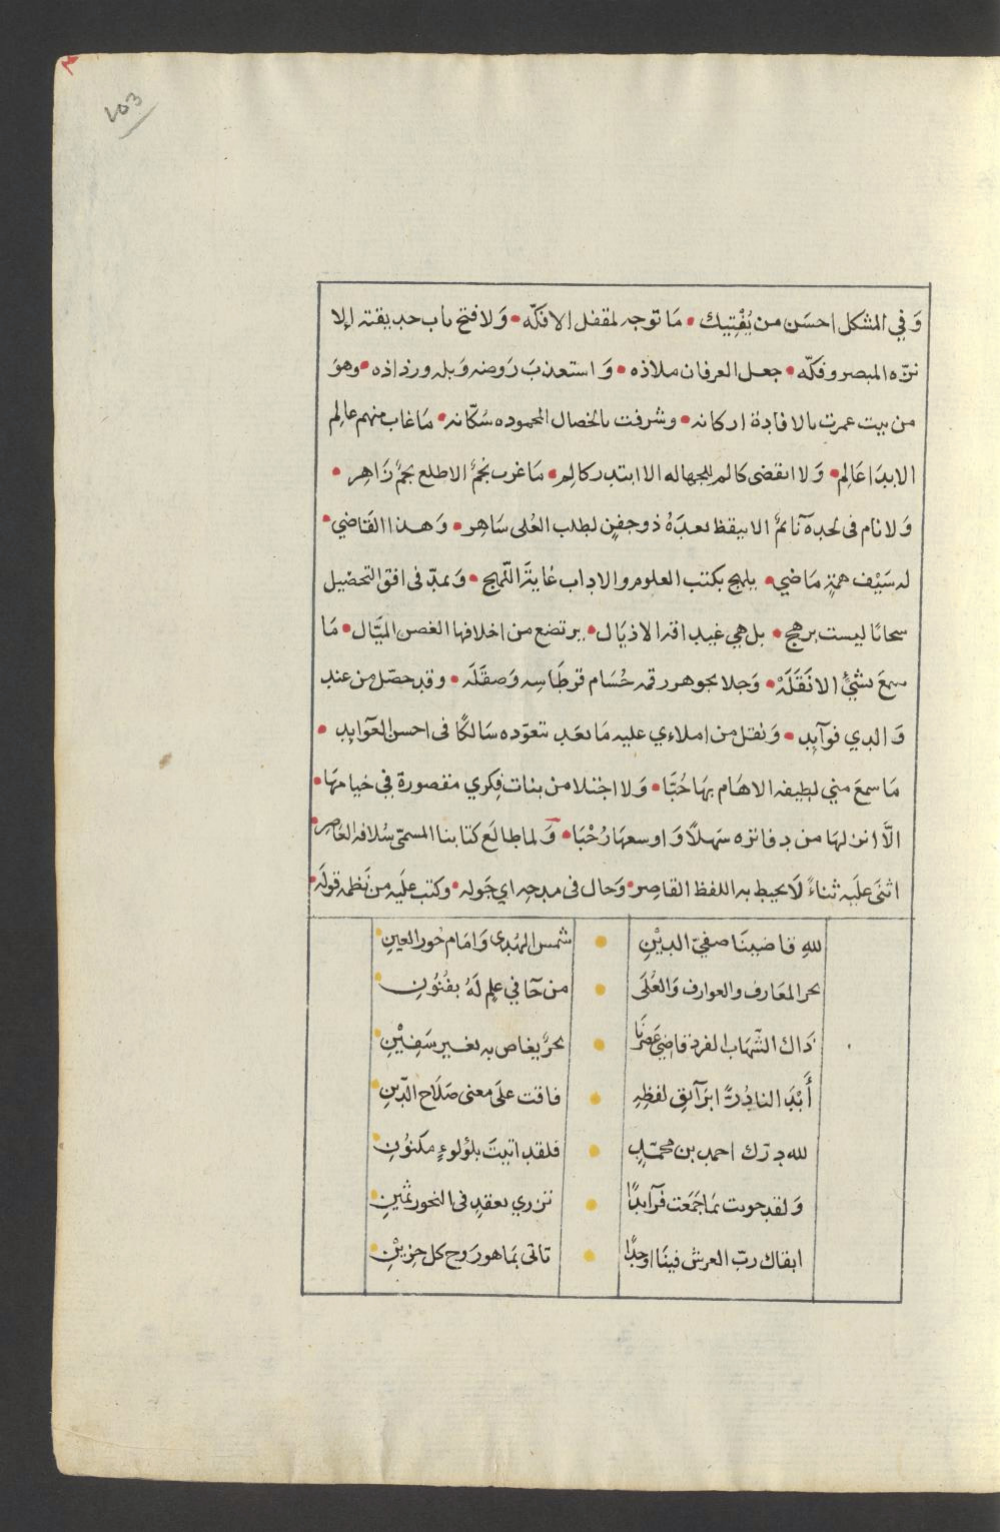 103
وَفي المشكل احسَن من يُفْتِيك • مَا توجه لمقفل الا فكّه • وَلا فتح باب حديقته إلا
نزّه المبصر وفكّه • جعل العرفان ملاذه • وَاستعذبَ رَوضه وَبله ورذاذه • وهوَ
من بيت عمرت بالافادة اركانه • وشرفت بالخصال المحموده سُكّانه • مَا غاب منهم عالِم
الا بدَا عَالِم • وَلا انقضى كالم للجهاله الا ابتدر كالِم • مَا غرب نجمٌ الا طلع نجمٌ زَاهِر •
وَلا نام في لحده نَآئمٌ الا تيقظ بعدَهُ ذو جفنٍ لطلب العُلى سَاهر • وَهذا القَاضي •
له سَيْف همةٍ مَاضي • يلهج بكتب العلوم والاداب غايةَ اللّهج • وَيمدّ في افق التحصيل
سحابًا ليست برهج • بل هي غيداقه الاذيَال • يرتضع من اخلافها الغصن الميَّال • مَا
سمعَ بشيءٍ الا نَقَلَهْ • وَجلا بجوهر رقمه حُسَام قرطَاسِه وَصقَلَه • وقد حصّل من عند
وَالدي فوآيد • وَنقل من املاءي عليه مَا بعَد تعوّده سَالكًا في احسن العَوآيد •
مَا سمعَ مني لطيفه الا هَام بهَا حُبَّا • وَلا اجتلا من بنات فِكري مقصورة في خيامهَا •
الاَّ انزلهَا من دفاتره سَهلاً وَاوسعهَا رُحْبَا • وَلما طالَع كتابنا المسمّى سُلافه العَاصِر •
اثنَى علَيه ثناءً لَا يحيط به اللفظ القاصِر • وَحال في مدحِه اي جَوله • وكتب علَيه من نَظمه قولَه •
للهِ قاضينَا صفيّ الديْنِ • شمس الهُدى وَامَام حُور العِينِ
بحر المعَارف والعوارف وَالعُلَى • من حَآ في علمٍ لَهُ بفُنُونِ
ذاك الشّهاب الفرد قاضِيَ عَصْرِنَا • بحرٌ يغاص به بغير سَفِيْنِ
أَبْدَا النادُرةً ابرَآئقِ لفظِهِ • فاقت علَى معنى صَلَاح الدّينِ
لله درّك احمد بن محمّدٍ • فلقد اتيتَ بلؤلوءٍ مكنوُنِ
وَلقد حويت بمَا جَمَعت فَرآيدًا • تزري بعقدٍ في النحور ثمينِ
ابقاك ربّ العرش فينَا اوحدًّا • تاتى بمَا هو رَوح كل حزِيْنِ